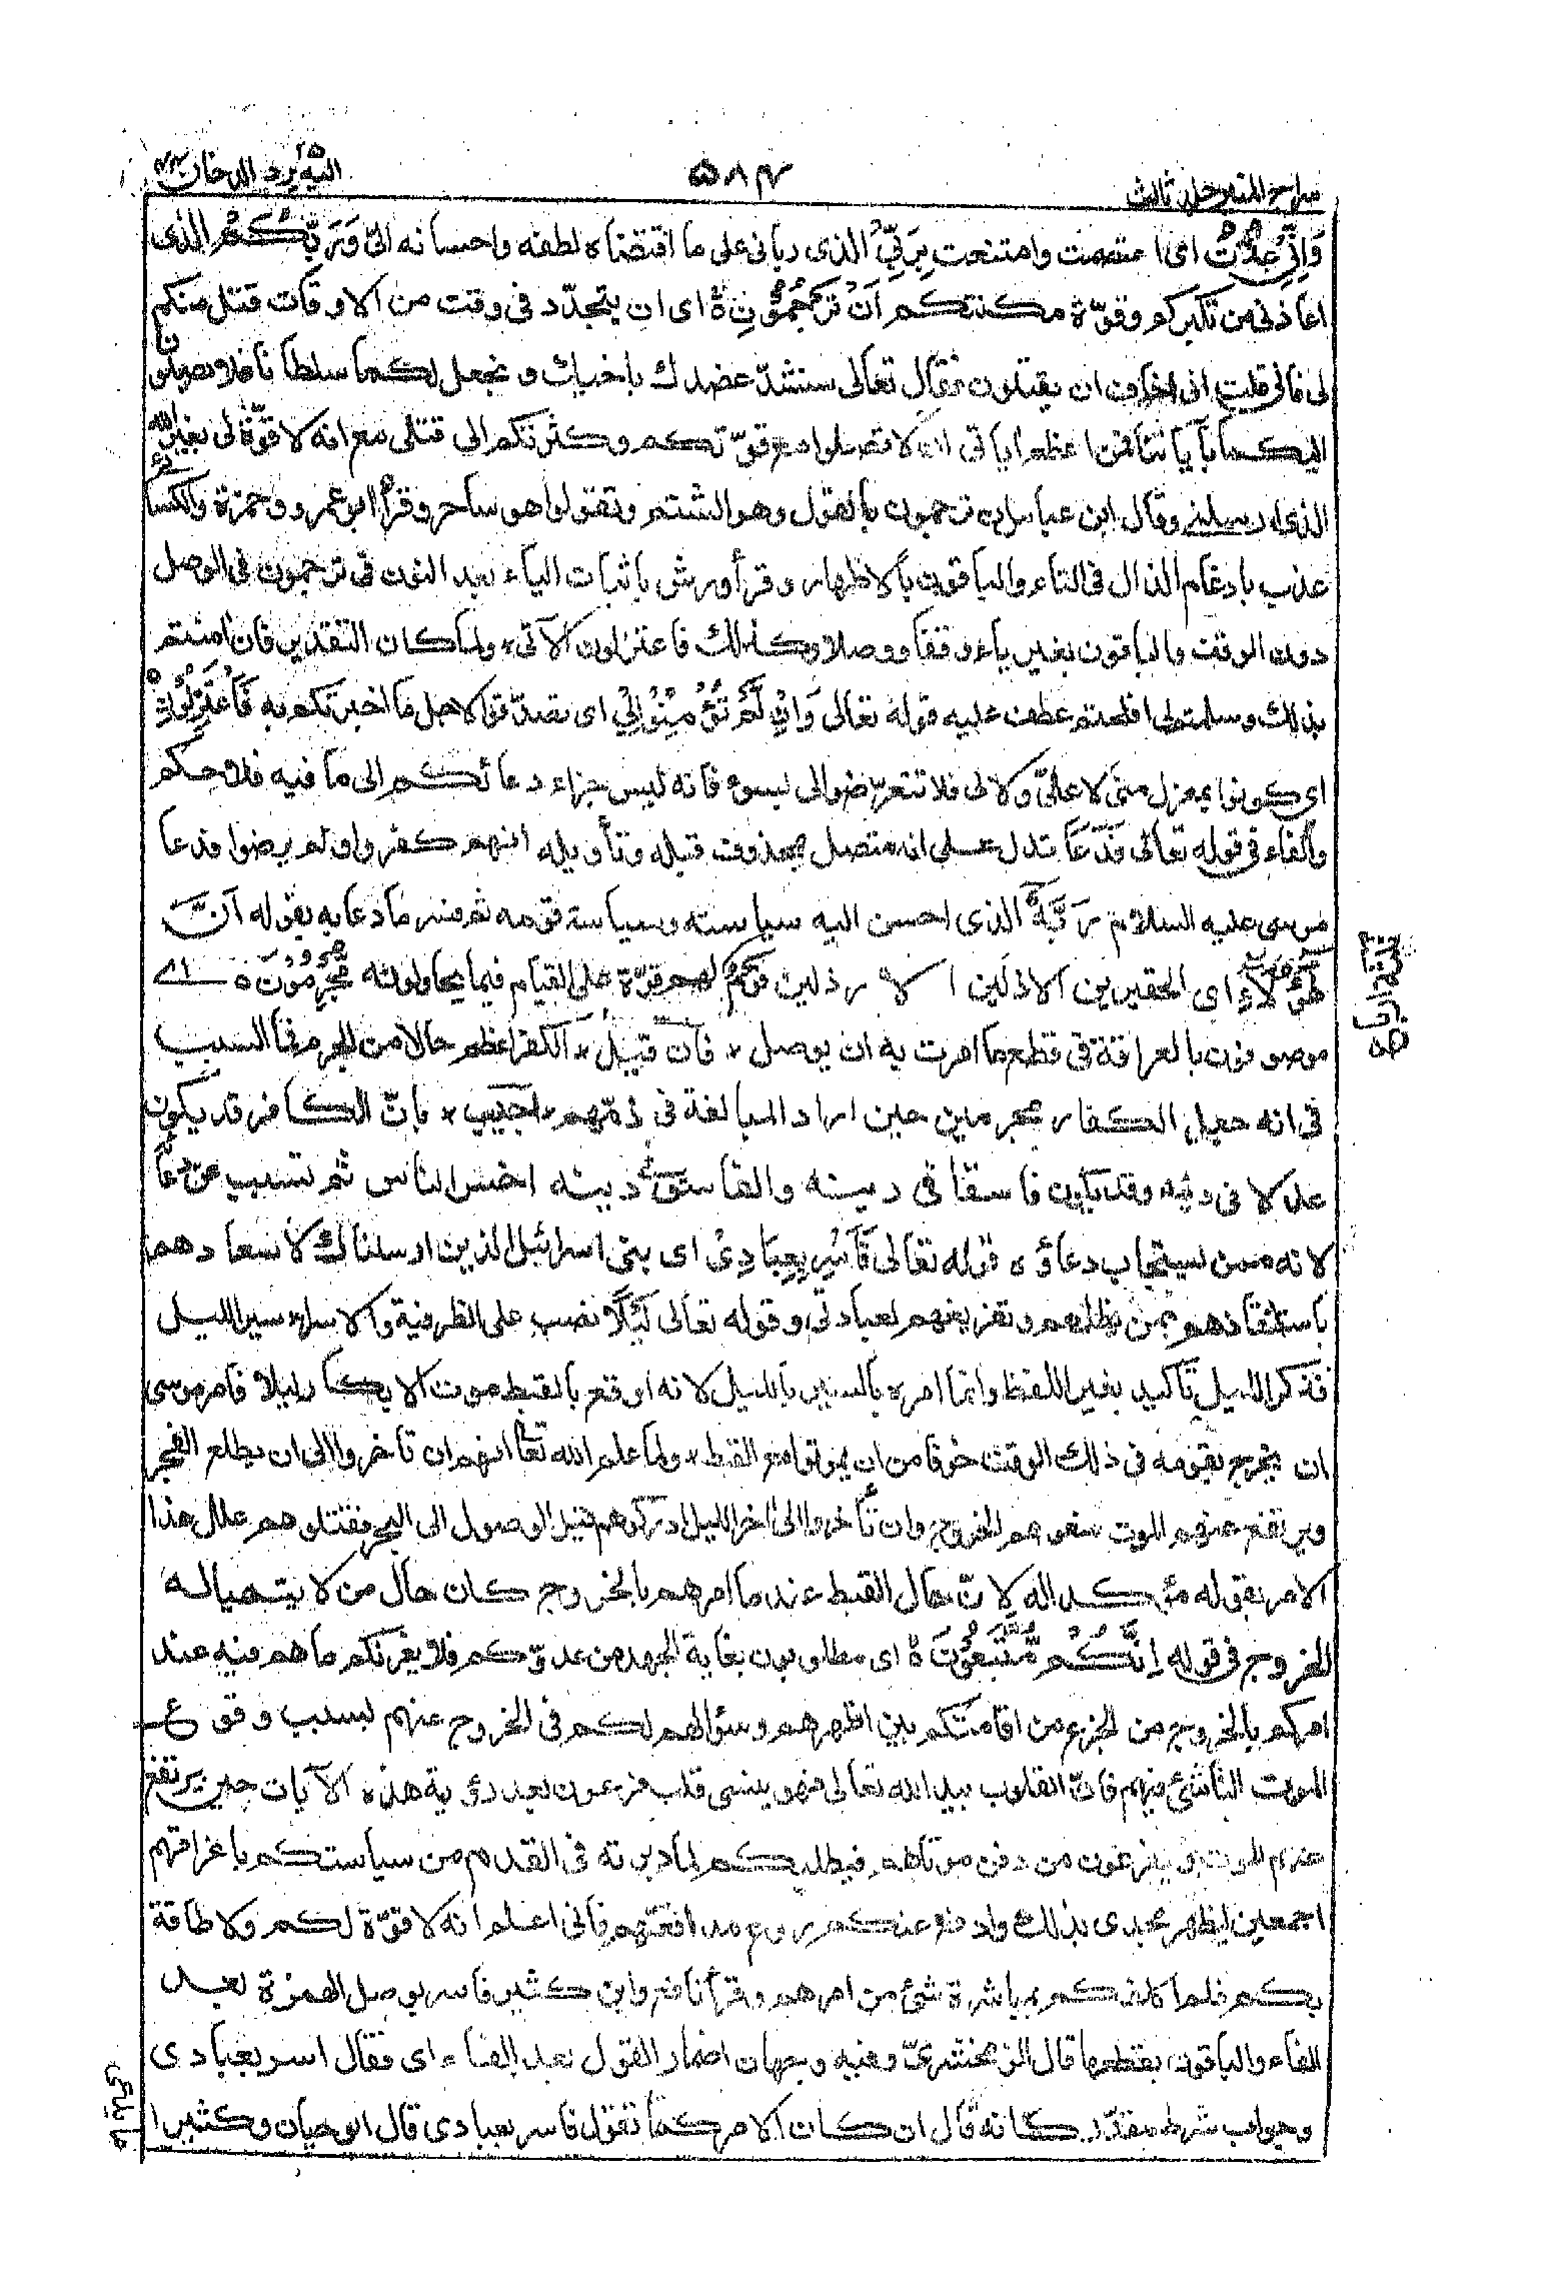 سراج المنير جلد ثالث
۵۸۴
اليه يرد ۲۵ الدخان ۴۴
وَاِنِّي عُذْتُ اى اعتصمت وامتنعت بِرَبِّي الذى ربانى على ما اقتضاه لطفه واحسانه الىّ وَرَبِّكُمْ الذى
اعاذنى من تكبركم وقوّة مكنتكم اَنْ تَرْجُمُوْنِ ۵ اى ان يتجدّد فى وقت من الاوقات قتل منكم
لى فانى قلت انى اخاف ان يقتلون فقال تعالى سنشدّ عضدك باخيك ونجعل لكما سلطانا فلا يصلون
اليكما بآياتنا فمن اعظم آياتى ان لا تصلوا مع قوّتكم وكثرتكم الى قتلى مع انه لا قوّة لى بغير الله
الذى ارسلنى وقال ابن عباس ان ترجمون بالقول وهو الشتم وتقولوا هو ساحر وقرأ ابو عمرو وحمزة والكسائى
عذت بادغام الذال فى التاء والباقون بالاظهار وقرأ ورش باثبات الياء بعد النون فى ترجمون فى الوصل
دون الوقف والباقون بغير ياء وقفا ووصلا وكذلك فاعتزلون الآتى ولما كان التقدير فان امنتم
بذلك وسلمتم لى افلحتم عطف عليه قوله تعالى وَاِنْ لَّمْ تُؤْمِنُوْا لِيْ اى تصدّقونى لاجل ما اخبرتكم به فَاعْتَزِلُوْنِ ۵
اى كونوا بمعزل منى لا علىّ ولا لى فلا تتعرّضوا لى بسوء فانه ليس جزاء دعائكم الى ما فيه فلاحكم
والفاء فى قوله تعالى فَدَعَا تدل على انه متصل بمحذوف قبله وتأويله انهم كفروا ولم يرضوا فدعا
موسى عليه السلام رَبَّهٗ الذى احسن اليه سياسته وسياسة قومه ثم فسر ما دعا به بقوله اَنَّ
هٰٓؤُلَآءِ اى الحقيرين الاذلين الارذلين قَوْمٌ لهم قوّة على القيام فيما يحاولونه مُّجْرِمُوْنَ ۵ اے
موصوفون بالعراقة فى قطع ما امرت به ان يوصل * فان قيل * الكفر اعظم حالا من الجرم فما السبب
فى انه جعل الكفار مجرمين حين اراد المبالغة فى ذمّهم * اجيب * بانّ الكافر قد يكون
عدلا فى دينه وقد يكون فاسقا فى دينه والفاسق فى دينه اخس الناس ثم تسبب عن دعائه
لانه ممن يستجاب دعاؤه قوله تعالى فَاَسْرِ بِعِبَادِيْ اى بنى اسرائيل الذين ارسلناك لاسعادهم
باستنقاذهم ممن يظلمهم وتفريغهم لعبادتى وقوله تعالى لَيْلًا نصب على الظرفية والاسراء سير الليل
فذكر الليل تأكيد بغير اللفظ وانما امره بالسير بالليل لانه اوقع بالقبط موت الابكار ليلا فامر موسى
ان يخرج بقومه فى ذلك الوقت خوفا من ان يموتوا مع القبط * ولما علم الله تعالى انهم ان تأخروا الى ان يطلع الفجر
ويرتفع عنهم الموت منعوهم الخروج وان تأخروا الى آخر الليل ادركوهم قبل الوصول الى البحر فقتلوهم علل هذا
الامر بقوله مؤكدا له لانّ حال القبط عندما امرهم بالخروج كان حال من لا يتهيأ له
الخروج فى قوله اِنَّكُمْ مُّتَّبَعُوْنَ ۵ اى مطلوبون بغاية الجهد من عدوّكم فلا يغرنكم ما هم فيه عند
امركم بالخروج من الجزع من اقامتكم بين اظهرهم وسؤالهم لكم فى الخروج عنهم بسبب وقوع
الموت الناشئ فيهم فانّ القلوب بيد الله تعالى فهو ينسى قلب فرعون بعد رؤية هذه الآيات حين يرتفع
عنهم الموت ويفرغون من دفن موتاهم فيطلبكم لما دبرته فى القدم من سياستكم باغراقهم
اجمعين ليظهر مجدى بذلك وادفع عنكم روع مدافعتهم فانى اعلم انه لا قوّة لكم ولا طاقة
بكم فلم اكلفكم مباشرة شئ من امرهم وقرأ نافع وابن كثير فاسر بوصل الهمزة بعد
الفاء والباقون بقطعها قال الزمخشرىّ وفيه وجهان اضمار القول بعد الفاء اى فقال اسر بعبادى
وجواب شرط مقدّر كانه قال ان كان الامر كما تقول فاسر بعبادى قال ابو حيان وكثيرا